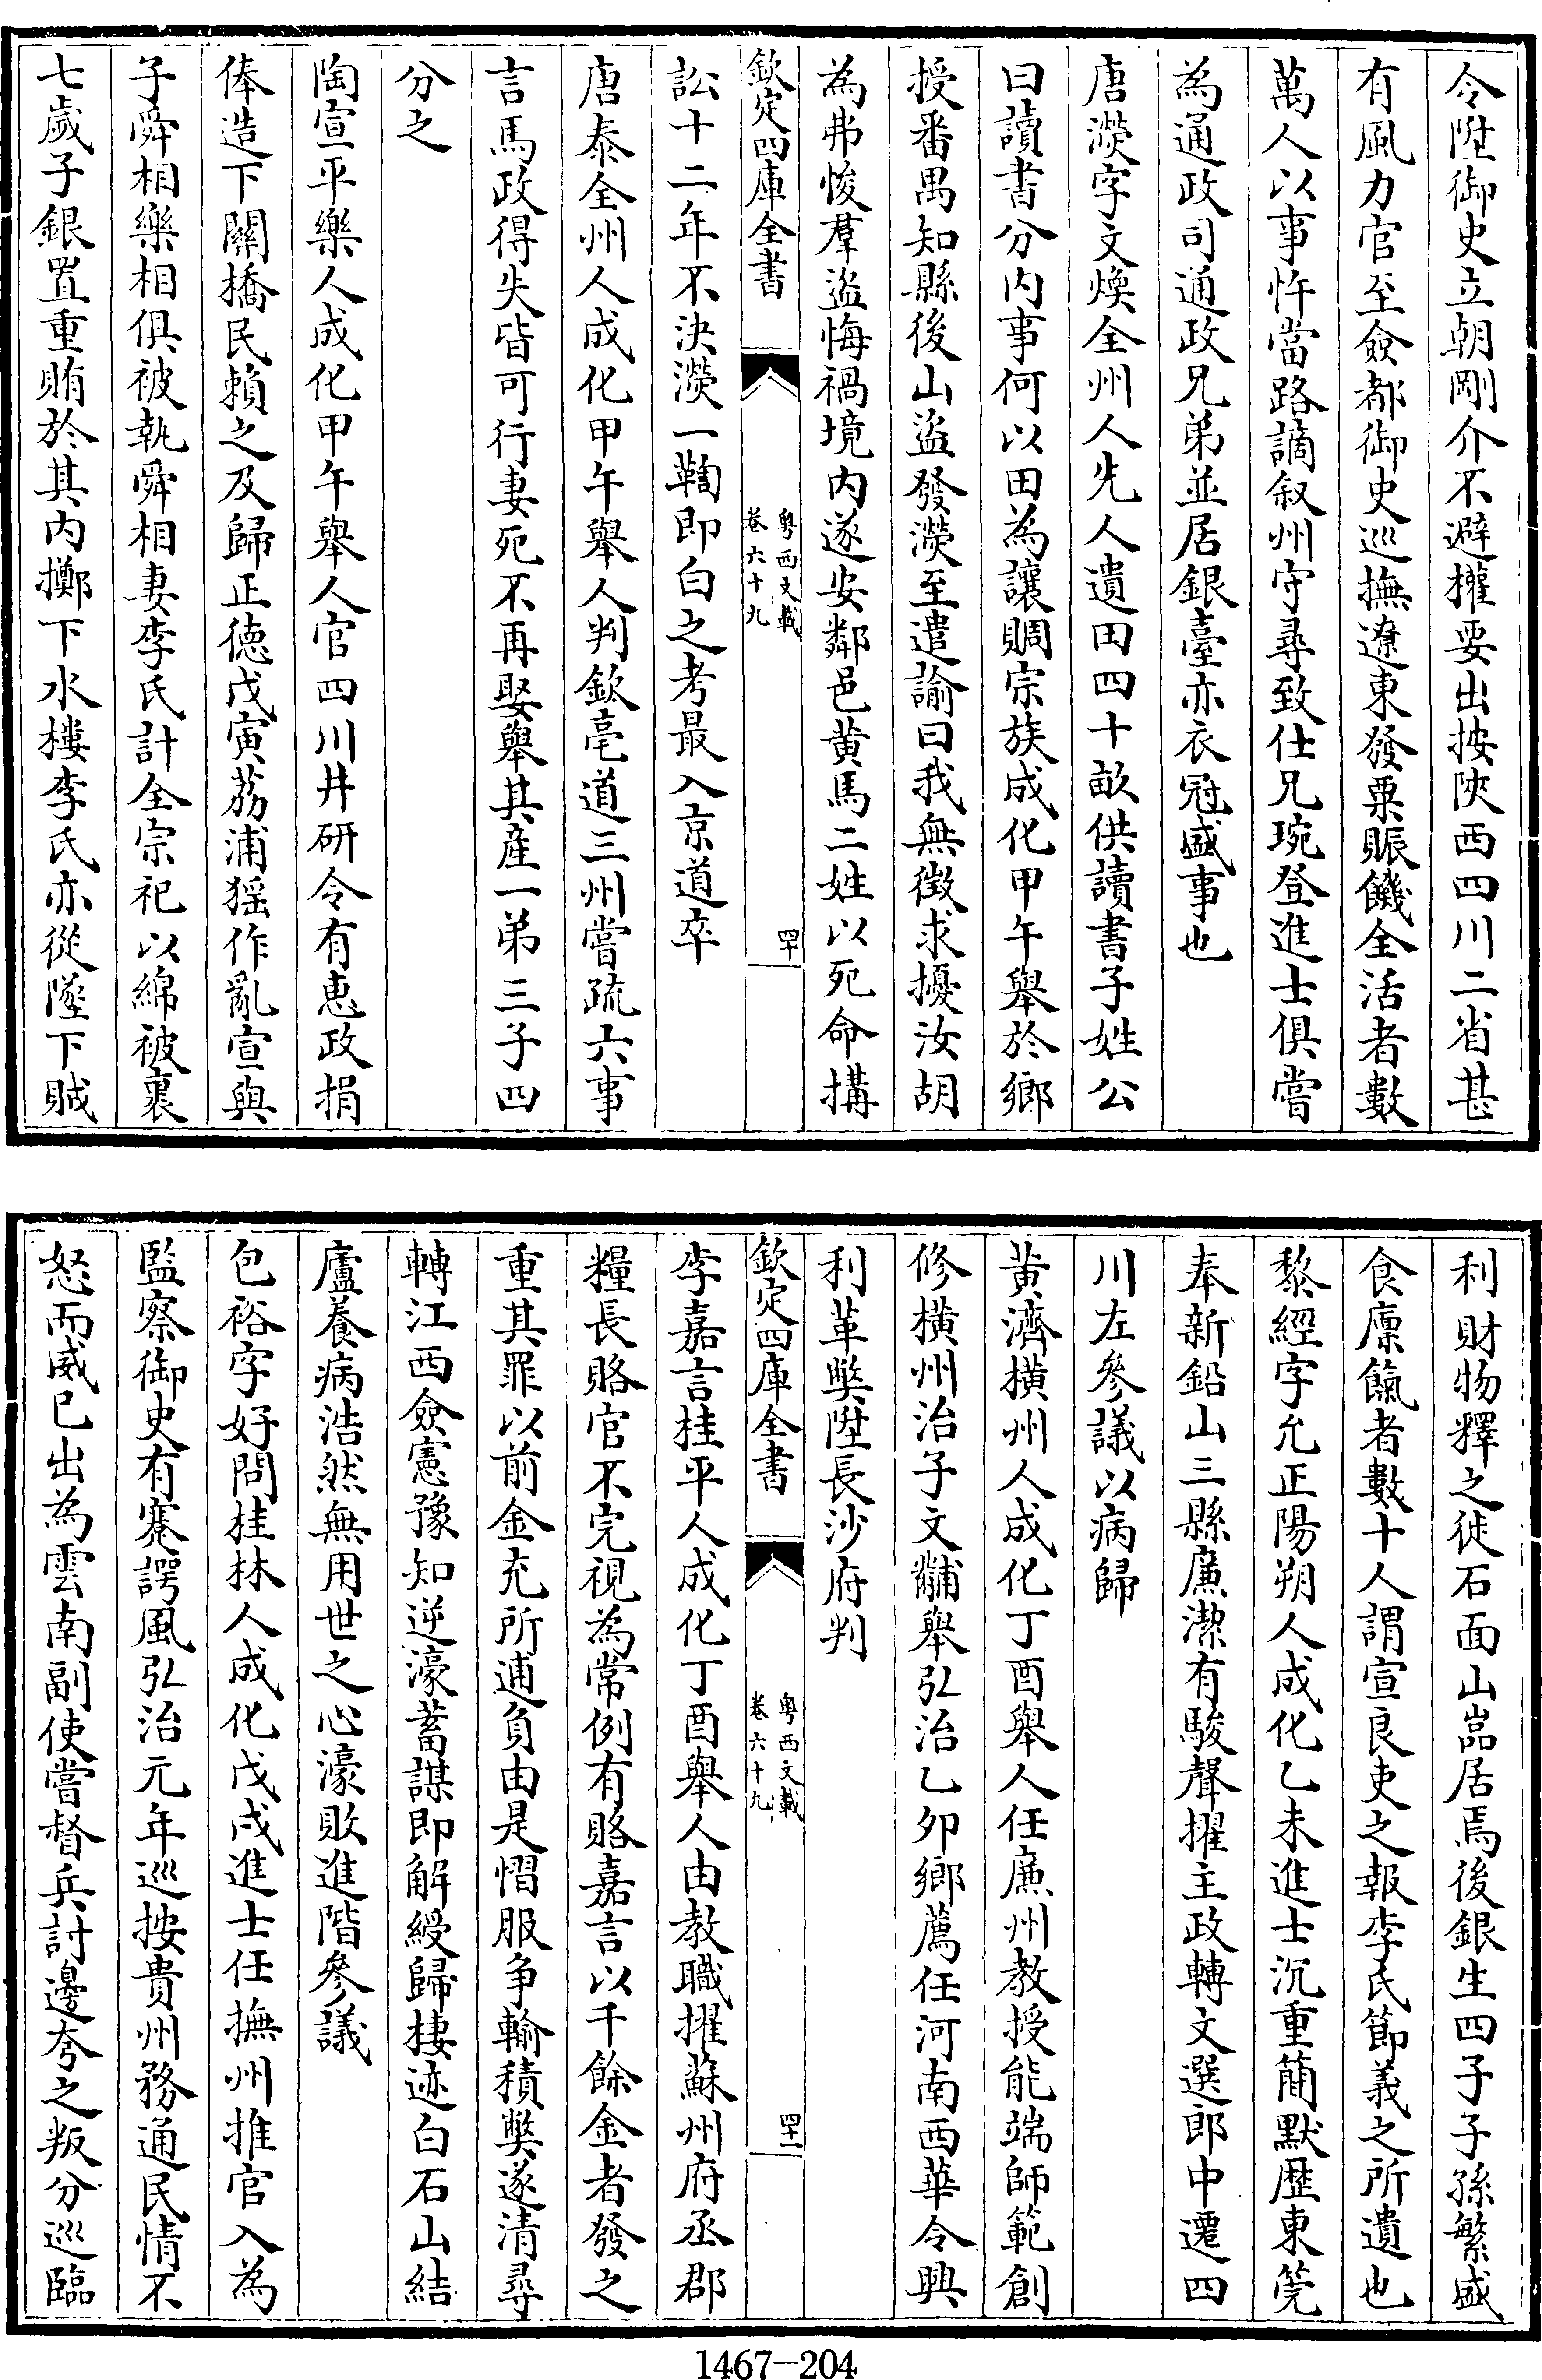 令陞御史立朝剛介不避權要出按陜西四川二省甚
有風力官至僉都御史巡撫遼東發粟賑饑全活者數
萬人以事忤當路謫叙州守尋致仕兄琬登進士俱嘗
為通政司通政兄弟並居銀臺亦衣冠盛事也
唐濙字文煥全州人先人遺田四十畝供讀書子姓公
曰讀書分内事何以田為讓賙宗族成化甲午舉於鄉
授番禺知縣後山盜發濙至遣諭曰我無徴求擾汝胡
為弗悛羣盜悔禍境内遂安鄰邑黄馬二姓以死命搆
欽定四庫全書
粤西文載
卷六十九
四十
訟十二年不決濙一鞫即白之考最入京道卒
唐泰全州人成化甲午舉人判欽亳道三州嘗疏六事
言馬政得失皆可行妻死不再娶舉其産一弟三子四
分之
陶宣平樂人成化甲午舉人官四川井研令有惠政捐
俸造下關橋民賴之及歸正徳戊寅荔浦猺作亂宣與
子舜相樂相俱被執舜相妻李氏計全宗祀以綿被裹
七歲子銀置重賄於其内擲下水樓李氏亦從墜下賊
利財物釋之徙石面山嵓居焉後銀生四子子孫繁盛
食廪餼者數十人謂宣良吏之報李氏節義之所遺也
黎經字允正陽朔人成化乙未進士沉重簡默歴東筦
奉新鉛山三縣廉潔有駿聲擢主政轉文選郎中遷四
川左參議以病歸
黄濟横州人成化丁酉舉人任廉州教授能端師範創
修横州治子文黼舉弘治乙卯鄉薦任河南西華令興
利革獘陞長沙府判
欽定四庫全書
粤西文載
卷六十九
四十一
李嘉言桂平人成化丁酉舉人由教職擢蘇州府丞郡
糧長賂官不完視為常例有賂嘉言以千餘金者發之
重其罪以前金充所逋負由是慴服争輸積獘遂清尋
轉江西僉憲豫知逆濠蓄謀即解綬歸棲迹白石山結
廬養病浩然無用世之心濠敗進階參議
包裕字好問桂林人成化戊戌進士任撫州推官入為
監察御史有蹇諤風弘治元年巡按貴州務通民情不
怒而威已出為雲南副使嘗督兵討邊夸之叛分巡臨
1467-204